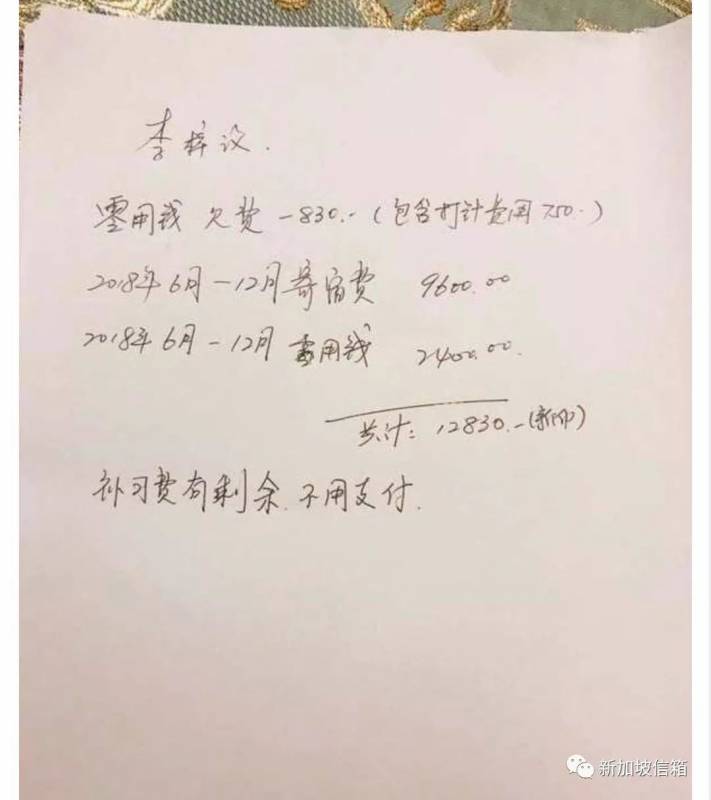 李梓议.
零用钱 欠费 -830.- (包含打计费用 750.-)
2018年6月-12月寄宿费 9600.00
2018年6月-12月 零用钱 2400.00.
共计: 12830.-(新币)
补习费有剩余.不用支付.
新加坡信箱